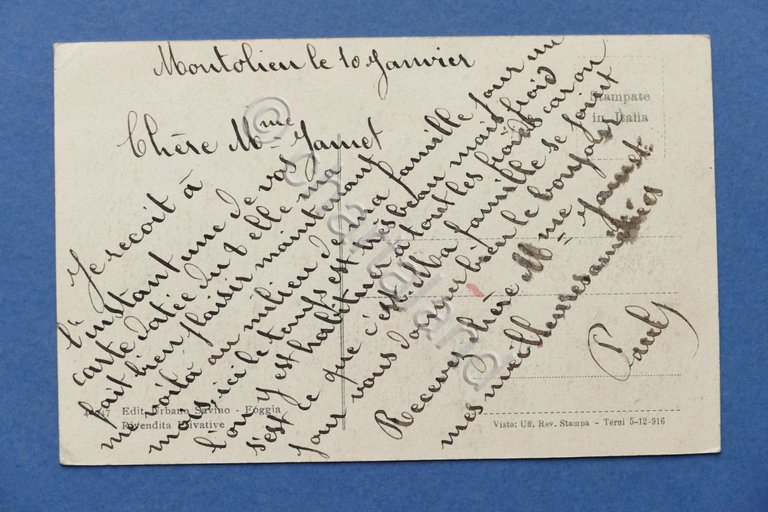 Montolieu le 10 Janvier
Chère Mme Jamet
Je reçoit à
l'instant une de vos
carte datée du 8 elle ma
fait bien plaisir maintenant
me voilà au milieu de ma famille pour un
mois, ici le temps est très beau mais froid
l'on y est habitué à tout les froids car on
s'est ce que c'est. Ma famille se joint
pour vous bien le bonjour
Recevez chère Mme Jamet
mes meilleures amitiés
Paul
Stampate
in Italia
Edit. Urbano Savino - Foggia
Rivendita Privative
Visto: Uff. Rev. Stampa - Terni 5-12-916
© chartaland